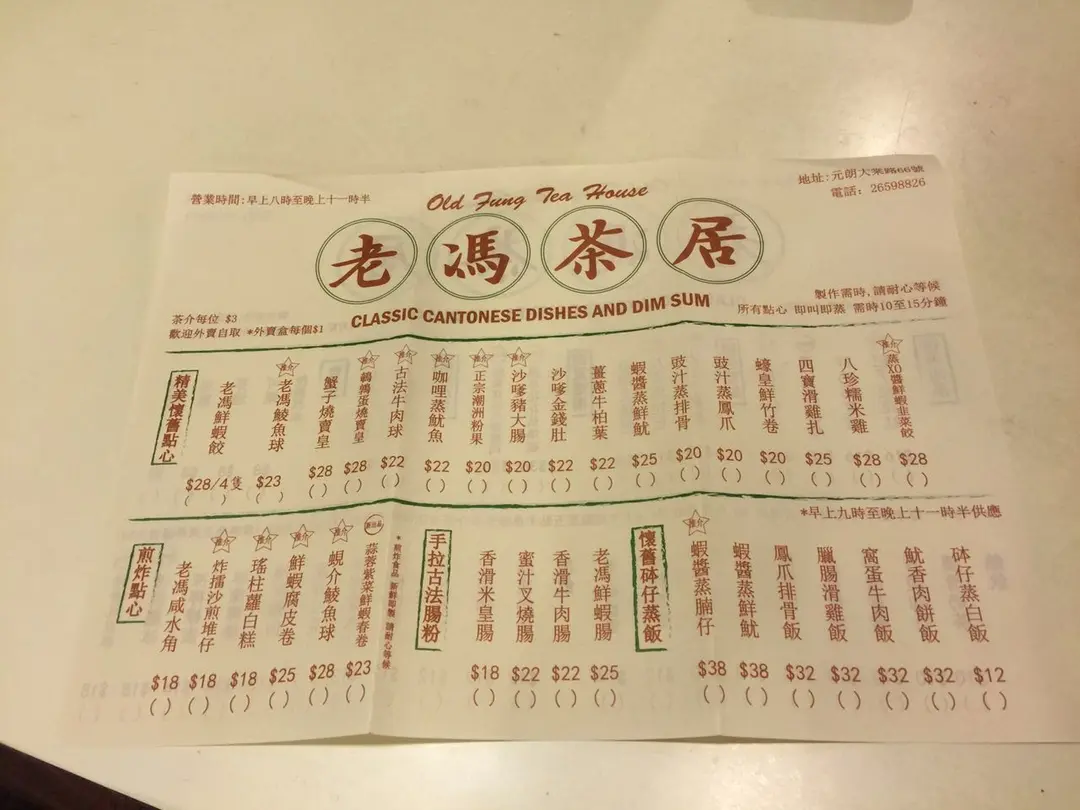 營業時間:早上八時至晚上十一時半
Old Fung Tea House
地址:元朗大棠路66號
電話: 26598826
老馮茶居
CLASSIC CANTONESE DISHES AND DIM SUM
茶介每位 $3
歡迎外賣自取 *外賣盒每個$1
製作需時,請耐心等候
所有點心 即叫即蒸 需時10至15分鐘
精美懷舊點心
老馮鮮蝦餃 $28/4隻 ( )
推介 老馮鯪魚球 $23 ( )
蟹子燒賣皇 $28 ( )
推介 鵪鶉蛋燒賣皇 $28 ( )
推介 古法牛肉球 $22 ( )
推介 咖哩蒸魷魚 $22 ( )
推介 正宗潮洲粉果 $20 ( )
推介 沙嗲豬大腸 $20 ( )
沙嗲金錢肚 $22 ( )
薑蔥牛柏葉 $22 ( )
蝦醬蒸鮮魷 $25 ( )
豉汁蒸排骨 $20 ( )
豉汁蒸鳳爪 $20 ( )
蠔皇鮮竹卷 $20 ( )
四寶滑雞扎 $25 ( )
八珍糯米雞 $28 ( )
推介 蒸XO醬鮮蝦韭菜餃 $28 ( )
*早上九時至晚上十一時半供應
煎炸點心
老馮咸水角 $18 ( )
推介 炸擂沙煎堆仔 $18 ( )
推介 瑤柱蘿白糕 $18 ( )
推介 鮮蝦腐皮卷 $25 ( )
推介 蜆介鯪魚球 $28 ( )
新出品 蒜蓉紫菜鮮蝦春卷 $23 ( )
*煎炸食品 新鮮即製 請耐心等候
手拉古法腸粉
香滑米皇腸 $18 ( )
蜜汁叉燒腸 $22 ( )
香滑牛肉腸 $22 ( )
老馮鮮蝦腸 $25 ( )
懷舊砵仔蒸飯
推介 蝦醬蒸腩仔 $38 ( )
蝦醬蒸鮮魷 $38 ( )
鳳爪排骨飯 $32 ( )
臘腸滑雞飯 $32 ( )
窩蛋牛肉飯 $32 ( )
魷香肉餅飯 $32 ( )
砵仔蒸白飯 $12 ( )